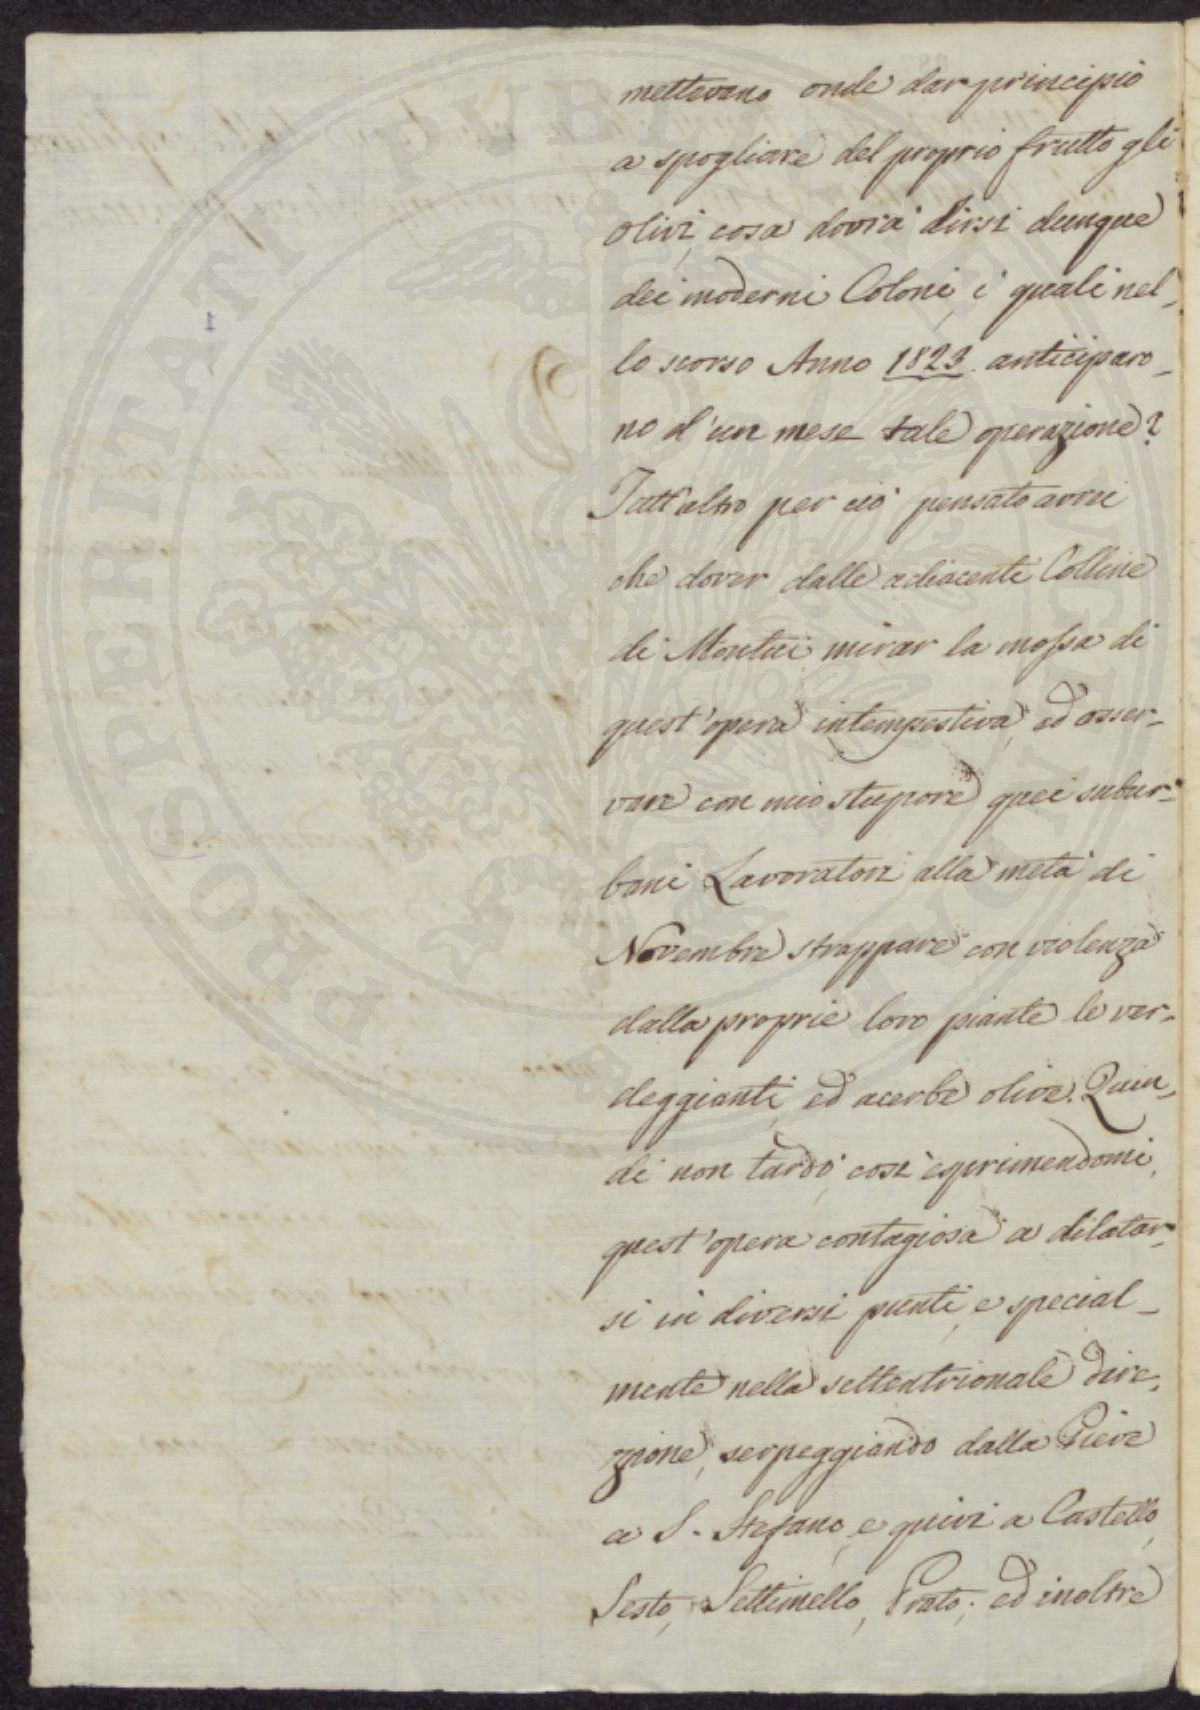 mettevano onde dar principio
a spogliare del proprio frutto gli
olivi, cosa dovrà dirsi dunque
dei moderni Coloni, i quali nel-
lo scorso Anno 1823. anticiparo-
no d'un mese tale operazione?
Tutt'altro per ciò pensato avrei
che dover dalle adiacenti Colline
di Montici mirar la mossa di
quest'opera intempestiva, ed osser-
vare con mio stupore quei subur-
bani Lavoratori alla metà di
Novembre strappare con violenza
dalla proprie loro piante le ver-
deggianti, ed acerbe olive. Quin-
di non tardò, così esprimendomi,
quest'opera contagiosa a dilatar-
si in diversi punti, e special-
mente nella settentrionale dire-
zione, serpeggiando dalla Pieve
a S. Stefano, e quivi a Castello,
Sesto, Settimello, Prato; ed inoltre
PROSPERITATI PUBLICAE AUGENDAE
1